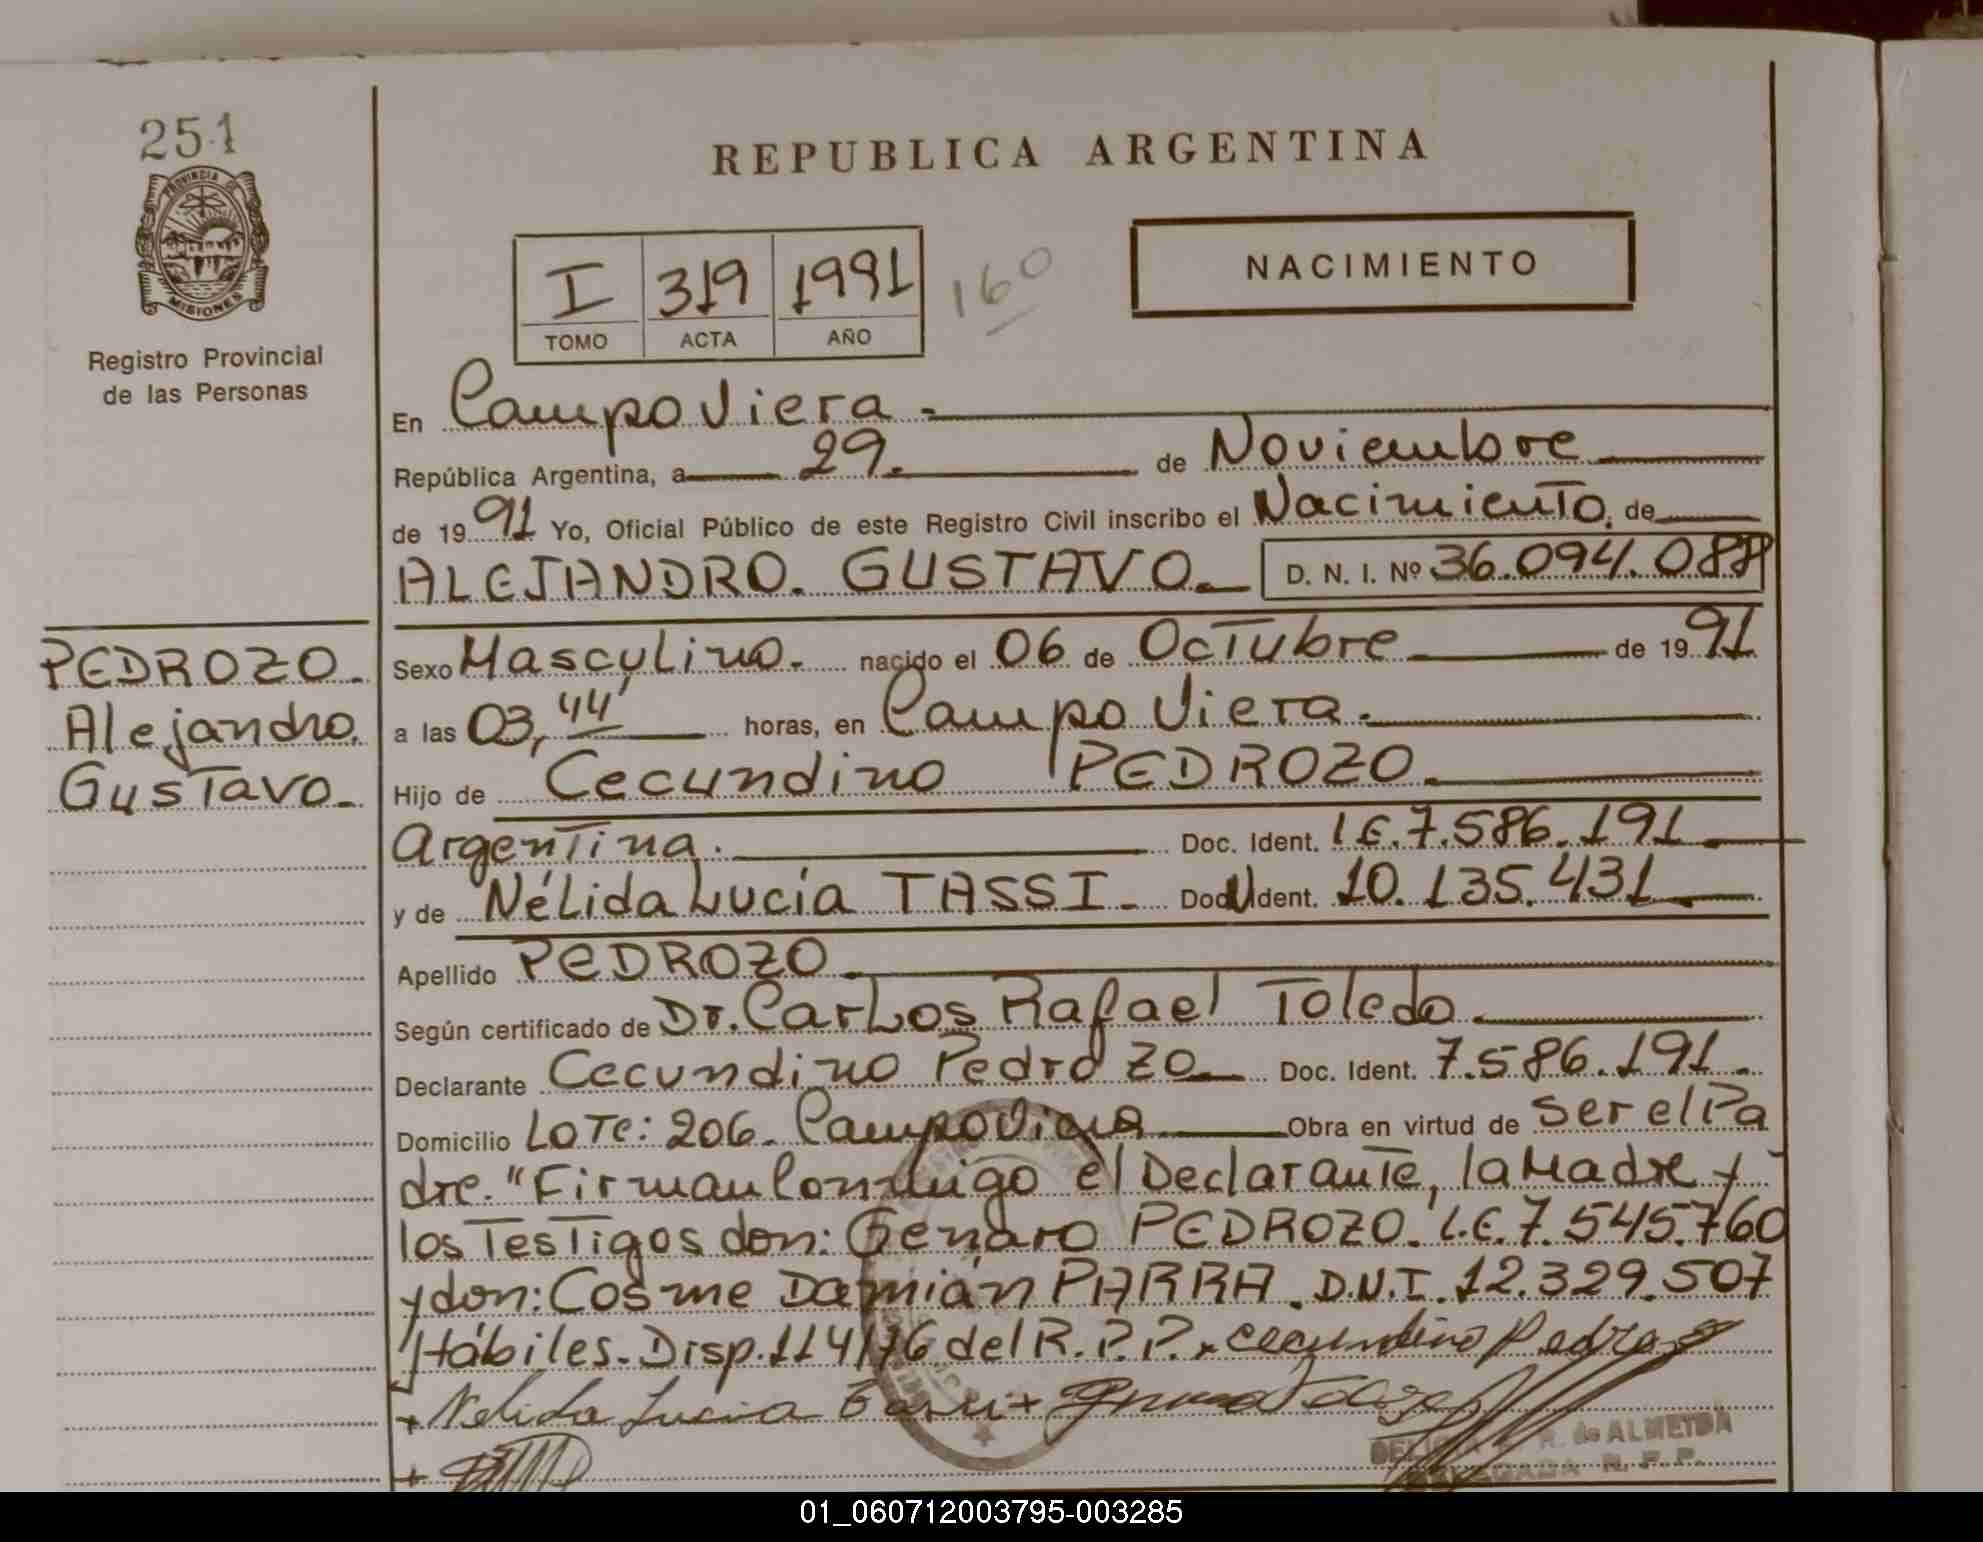 251
PROVINCIA DE
MISIONES
Registro Provincial
de las Personas
REPUBLICA ARGENTINA
I 319 1991
TOMO ACTA AÑO
160
NACIMIENTO
En Campo Viera.-
República Argentina, a 29. de Noviembre
de 1991 Yo, Oficial Público de este Registro Civil inscribo el Nacimiento, de
ALEJANDRO. GUSTAVO.- D. N. I. Nº 36.094.088
PEDROZO.
Alejandro.
Gustavo.-
Sexo Masculino. nacido el 06 de Octubre de 1991
a las 03,44' horas, en Campo Viera.-
Hijo de Cecundino PEDROZO.-
Argentina. Doc. Ident. L.E. 7.586.191
y de Nélida Lucía TASSI.- Doc. Ident. 10.135.431
Apellido PEDROZO.-
Según certificado de Dr. Carlos Rafael Toledo.
Declarante Cecundino Pedrozo Doc. Ident. 7.586.191.
Domicilio Lote: 206. Campo Viera Obra en virtud de ser el Pa
dre. "Firman Conmigo el Declarante, la Madre y
los Testigos don: Genaro PEDROZO. L.E. 7.545.760
y don: Cosme Damián PARRA. D.N.I. 12.329.507
Hábiles. Disp. 114/76 del R.P.P. x Cecundino Pedrozo
+ Nelida Lucia Tassi +
de ALMEIDA
DELEGADA R. P. P.
01_060712003795-003285